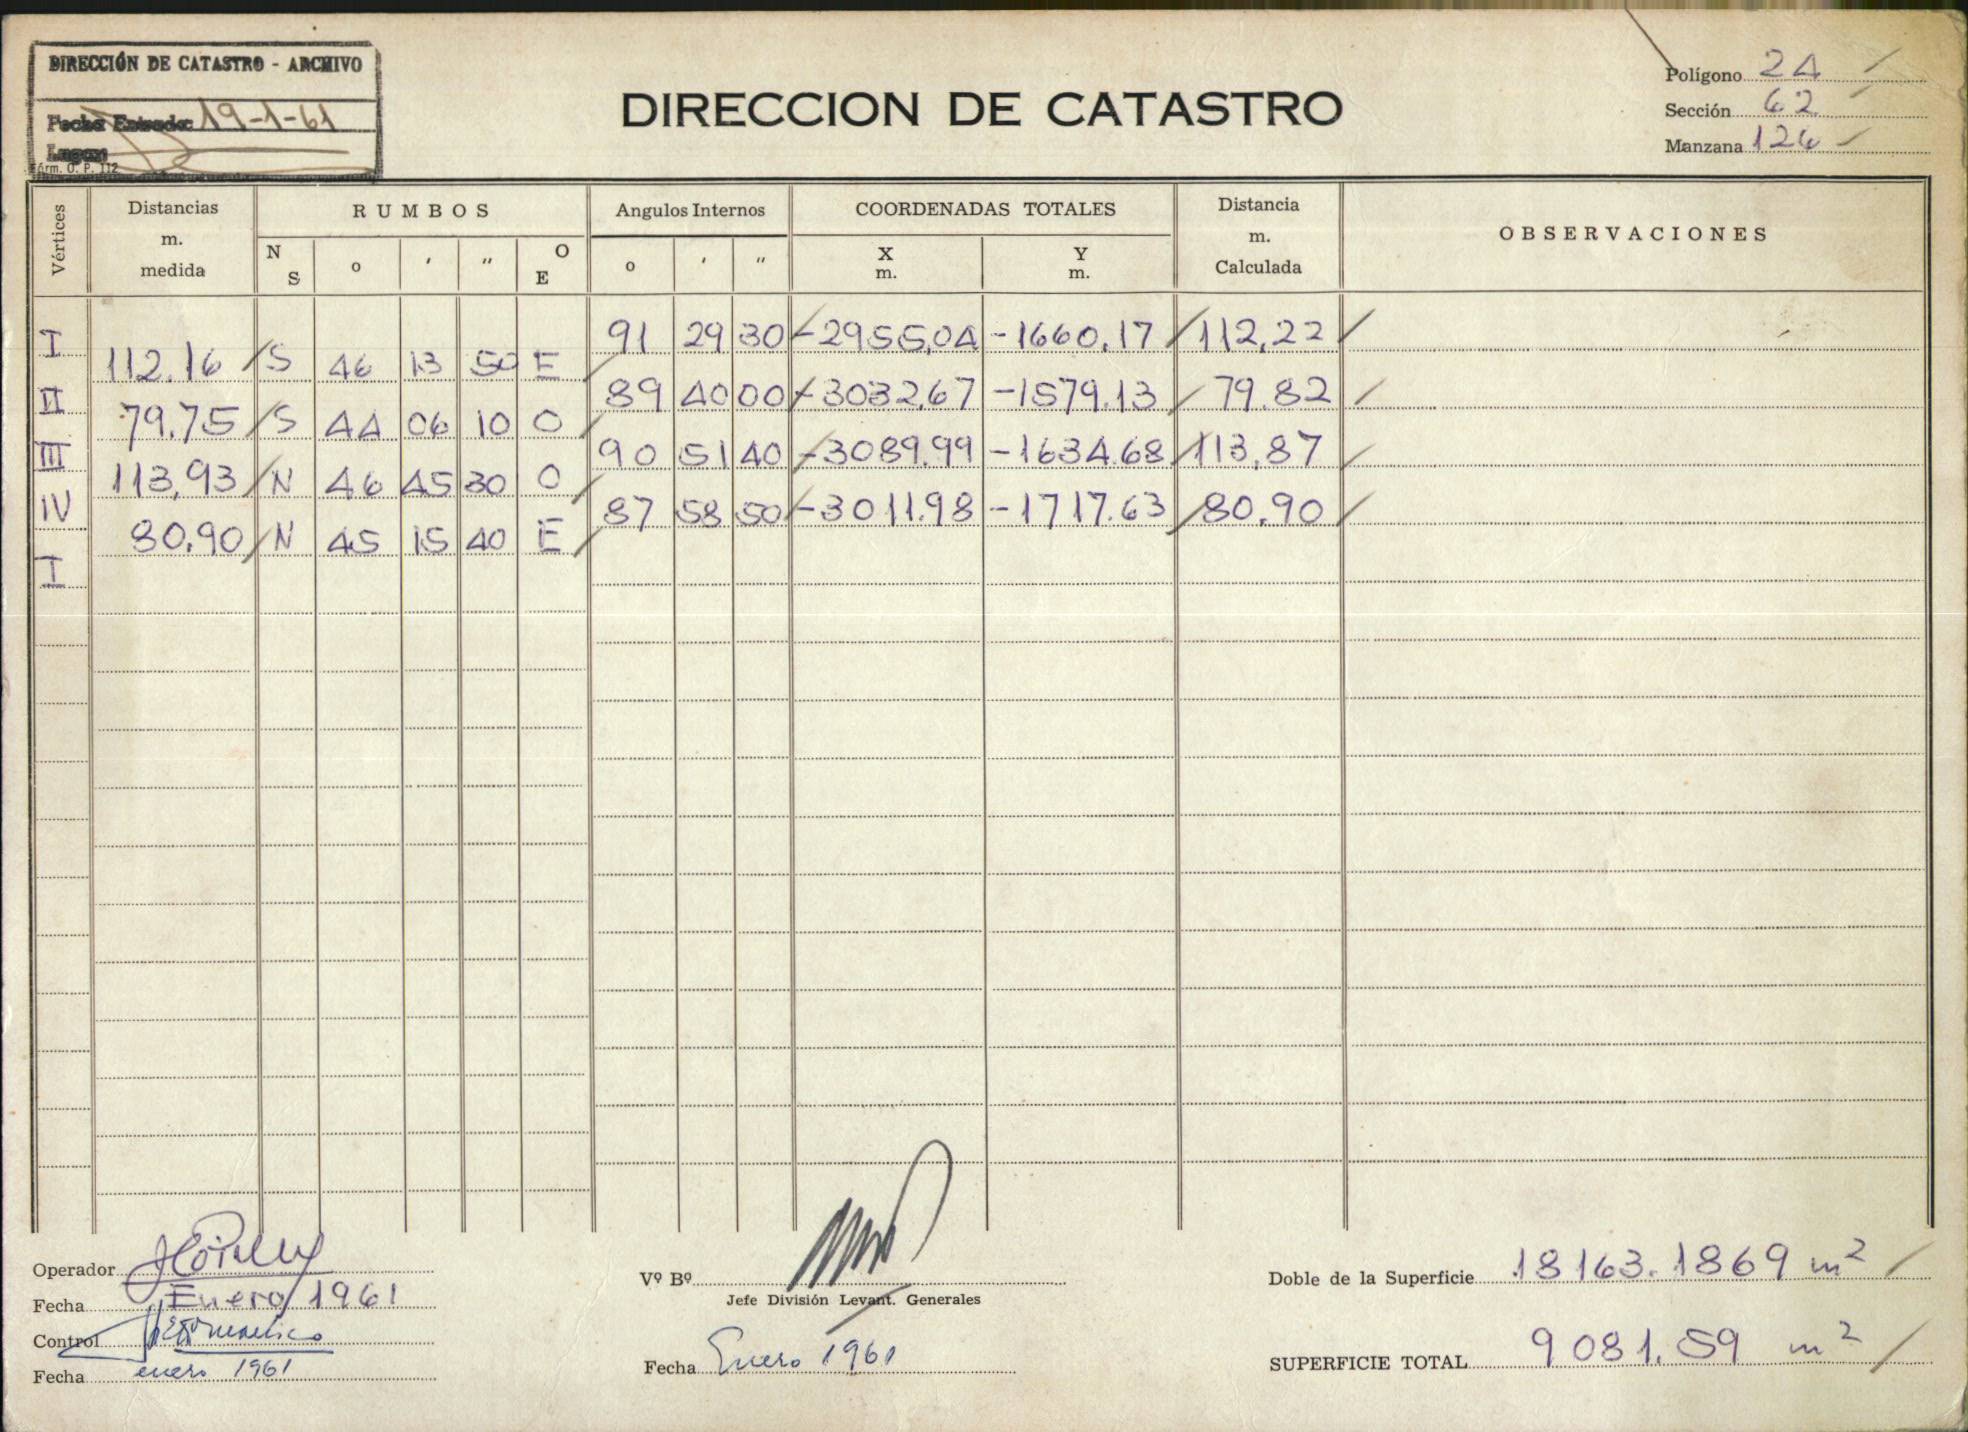 DIRECCIÓN DE CATASTRO - ARCHIVO
Fecha Entrada: 19-1-61
Lugar:
Fórm. O. P. 112
DIRECCION DE CATASTRO
Polígono 24
Sección 62
Manzana 126
Vértices Distancias m. medida RUMBOS Angulos Internos COORDENADAS TOTALES Distancia m. Calculada OBSERVACIONES
N S o ' " O E o ' " X m. Y m.
I 91 29 30 -2955,04 -1660.17 112,22
112.16 S 46 13 50 E
II 89 40 00 -3032,67 -1579.13 79.82
79.75 S 44 06 10 O
III 90 51 40 -3089.99 -1634.68 113,87
113,93 N 46 45 30 O
IV 87 58 50 -3011.98 -1717.63 80.90
80.90 N 45 15 40 E
I
Operador
Fecha Enero/1961
Control
Fecha enero 1961
Vº Bº
Jefe División Levant. Generales
Fecha Enero 1961
Doble de la Superficie 18163.1869 m²
SUPERFICIE TOTAL 9081.59 m²